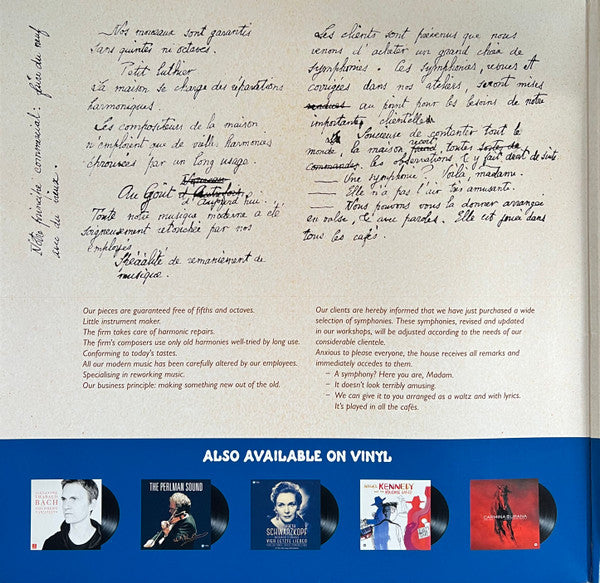 Nos morceaux sont garantis
sans quintes ni octaves.
Petit luthier
La maison se charge des réparations
harmoniques.
Les compositeurs de la maison
n'emploient que de vieilles harmonies
éprouvées par un long usage.
Au Goût d'Aujourd'hui.
Toute notre musique moderne a été
soigneusement retouchée par nos
employés
de remaniement de
musique.
Notre principe commercial : faire du neuf
avec du vieux
Les clients sont prévenus que nous
venons d'acheter un grand choix de
symphonies. Ces symphonies, revues et
corrigées dans nos ateliers, seront mises
au point pour les besoins de notre
importante clientelle.
Soucieuse de contenter tout le
monde, la maison reçoit toutes
les observations & y fait droit de suite
— Une symphonie? Voilà, madame.
— Elle n'a pas l'air très amusant.
— Nous pouvons vous la donner arrangée
en valse, & avec paroles. Elle est jouée dans
tous les cafés.
Our pieces are guaranteed free of fifths and octaves.
Little instrument maker.
The firm takes care of harmonic repairs.
The firm's composers use only old harmonies well-tried by long use.
Conforming to today's tastes.
All our modern music has been carefully altered by our employees.
Specialising in reworking music.
Our business principle: making something new out of the old.
Our clients are hereby informed that we have just purchased a wide
selection of symphonies. These symphonies, revised and updated
in our workshops, will be adjusted according to the needs of our
considerable clientele.
Anxious to please everyone, the house receives all remarks and
immediately accedes to them.
– A symphony? Here you are, Madam.
– It doesn't look terribly amusing.
– We can give it to you arranged as a waltz and with lyrics.
It's played in all the cafés.
ALSO AVAILABLE ON VINYL
ALEXANDRE
THARAUD
BACH
GOLDBERG
VARIATIONS
THE PERLMAN SOUND
SCHWARZKOPF
VIER LETZTE LIEDER
KENNEDY
CARMINA BURANA